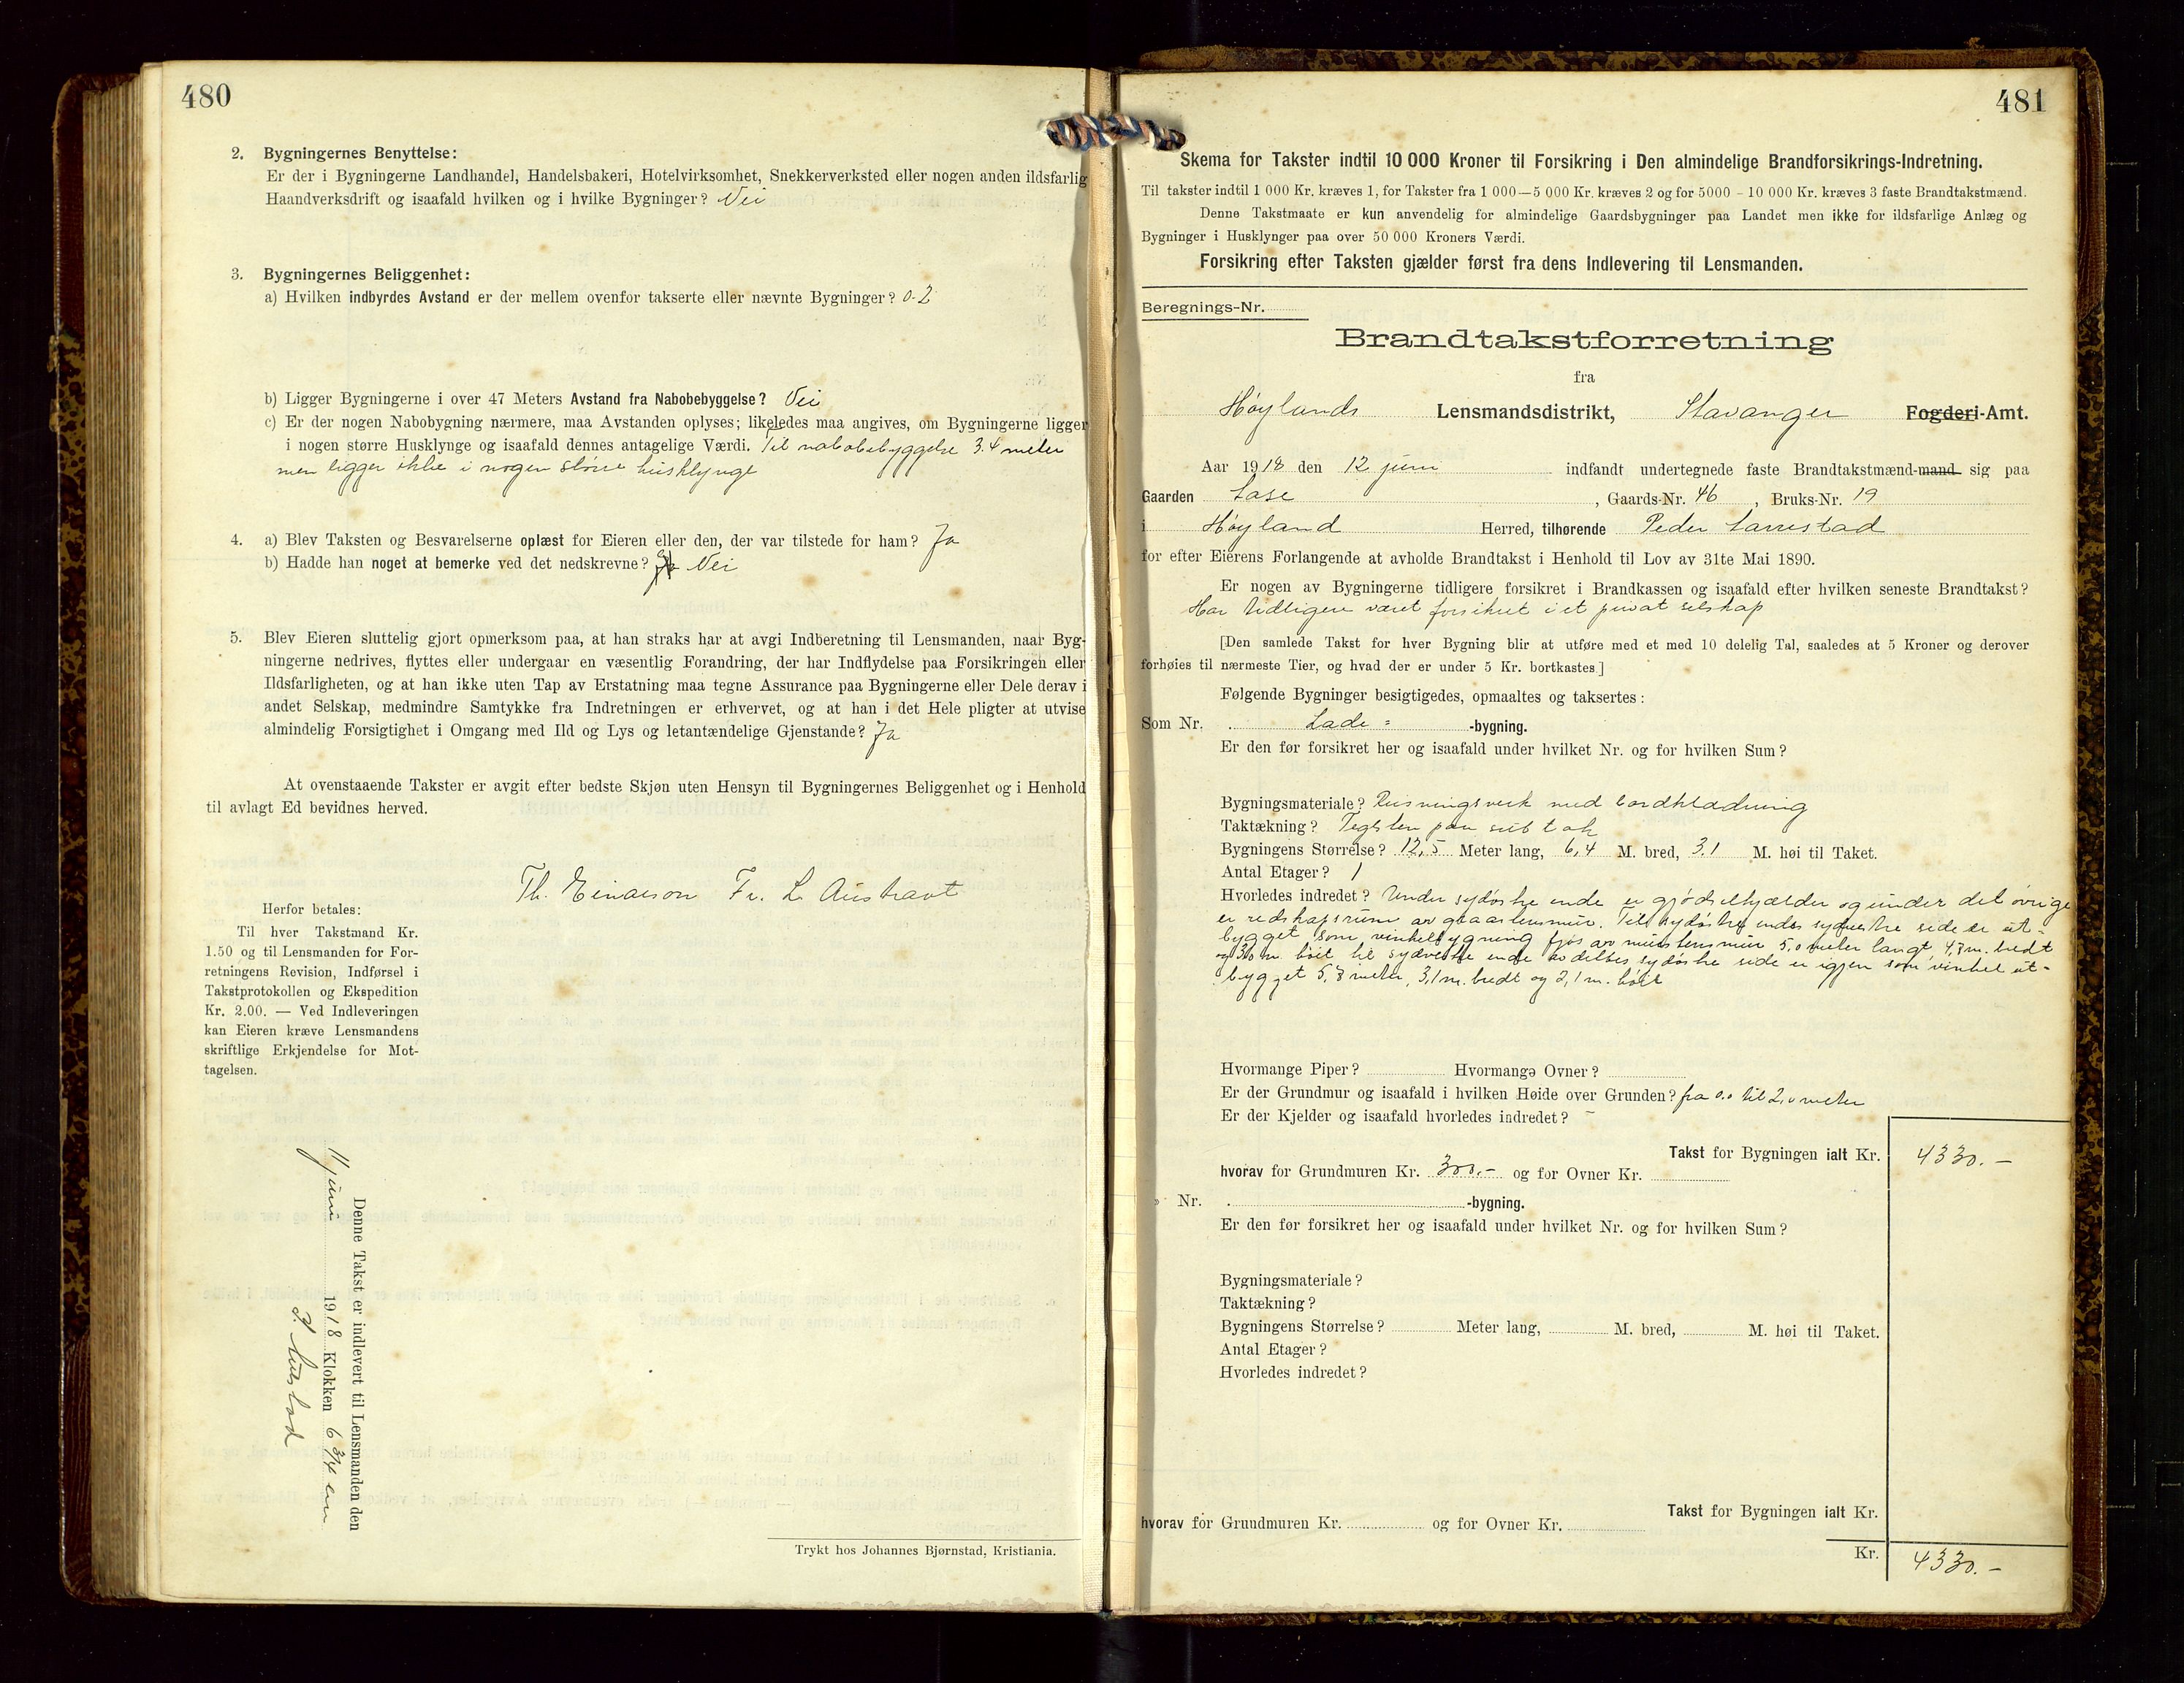 480
2. Bygningernes Benyttelse:
Er der i Bygningerne Landhandel, Handelsbakeri, Hotelvirksomhet, Snekkerverksted eller nogen anden ildsfarlig
Haandverksdrift og isaafald hvilken og i hvilke Bygninger? Nei
3. Bygningernes Beliggenhet:
a) Hvilken indbyrdes Avstand er der mellem ovenfor takserte eller nævnte Bygninger? 0.2
b) Ligger Bygningerne i over 47 Meters Avstand fra Nabobebyggelse? Nei
c) Er der nogen Nabobygning nærmere, maa Avstanden oplyses; likeledes maa angives, om Bygningerne ligger
i nogen større Husklynge og isaafald dennes antagelige Værdi. Til nabobebyggelse 3.4 meter
men ligger ikke i nogen større husklynge
4. a) Blev Taksten og Besvarelserne oplæst for Eieren eller den, der var tilstede for ham? Ja
b) Hadde han noget at bemerke ved det nedskrevne? Nei
5. Blev Eieren sluttelig gjort opmerksom paa, at han straks har at avgi Indberetning til Lensmanden, naar Byg-
ningerne nedrives, flyttes eller undergaar en væsentlig Forandring, der har Indflydelse paa Forsikringen eller
Ildsfarligheten, og at han ikke uten Tap av Erstatning maa tegne Assurance paa Bygningerne eller Dele derav i
andet Selskap, medmindre Samtykke fra Indretningen er erhvervet, og at han i det Hele pligter at utvise
almindelig Forsigtighet i Omgang med Ild og Lys og letantændelige Gjenstande? Ja
At ovenstaaende Takster er avgit efter bedste Skjøn uten Hensyn til Bygningernes Beliggenhet og i Henhold
til avlagt Ed bevidnes herved.
Th. Einarson Fr. L. Austravt
Herfor betales:
Til hver Takstmand Kr.
1.50 og til Lensmanden for For-
retningens Revision, Indførsel i
Takstprotokollen og Ekspedition
Kr. 2.00. — Ved Indleveringen
kan Eieren kræve Lensmandens
skriftlige Erkjendelse for Mot-
tagelsen.
Denne Takst er indlevert til Lensmanden den
11 juni 1918 Klokken 6 3/4 em
Trykt hos Johannes Bjørnstad, Kristiania.
481
Skema for Takster indtil 10 000 Kroner til Forsikring i Den almindelige Brandforsikrings-Indretning.
Til takster indtil 1 000 Kr. kræves 1, for Takster fra 1 000—5 000 Kr. kræves 2 og for 5000 - 10 000 Kr. kræves 3 faste Brandtakstmænd.
Denne Takstmaate er kun anvendelig for almindelige Gaardsbygninger paa Landet men ikke for ildsfarlige Anlæg og
Bygninger i Husklynger paa over 50 000 Kroners Værdi.
Forsikring efter Taksten gjælder først fra dens Indlevering til Lensmanden.
Beregnings-Nr.
Brandtakstforretning
fra
Høylands Lensmandsdistrikt, Stavanger Fogderi-Amt.
Aar 1918 den 12 juni indfandt undertegnede faste Brandtakstmænd-mand sig paa
Gaarden Lase, Gaards-Nr. 46, Bruks-Nr. 19
i Høyland Herred, tilhørende Peder
for efter Eierens Forlangende at avholde Brandtakst i Henhold til Lov av 31te Mai 1890.
Er nogen av Bygningerne tidligere forsikret i Brandkassen og isaafald efter hvilken seneste Brandtakst?
Har tidligere været forsikret i et privat selskap
[Den samlede Takst for hver Bygning blir at utføre med et med 10 delelig Tal, saaledes at 5 Kroner og derover
forhøies til nærmeste Tier, og hvad der er under 5 Kr. bortkastes.]
Følgende Bygninger besigtigedes, opmaaltes og taksertes:
Som Nr. Lade= -bygning.
Er den før forsikret her og isaafald under hvilket Nr. og for hvilken Sum?
Bygningsmateriale? Reisningsverk med bordklædning
Taktækning? Teglsten paa sutak
Bygningens Størrelse? 12,5 Meter lang, 6,4 M. bred, 3.1 M. høi til Taket.
Antal Etager? 1
Hvorledes indredet? Under sydøstre ende er gjødselkjælder og under det øvrige
er redskapsrum av graastensmur. Til sydøstre endes sydvestre side er ut-
bygget som vinkelbygning fjøs av murstensmur 5,0 meter langt, 4,7 m. bredt
og 3,0 m høit til sydvestre ende av dettes sydøstre side er igjen som vinkel ut-
bygget 5,8 meter, 3,1 m. bredt og 2,1 m. høit
Hvormange Piper? Hvormange Ovner?
Er der Grundmur og isaafald i hvilken Høide over Grunden? fra 0.0 til 2,0 meter
Er der Kjelder og isaafald hvorledes indredet? -
Takst for Bygningen ialt Kr. 4330.-
hvorav for Grundmuren Kr. 300.- og for Ovner Kr.
» Nr. -bygning.
Er den før forsikret her og isaafald under hvilket Nr. og for hvilken Sum?
Bygningsmateriale?
Taktækning?
Bygningens Størrelse? Meter lang, M. bred, M. høi til Taket.
Antal Etager?
Hvorledes indredet?
Takst for Bygningen ialt Kr.
hvorav for Grundmuren Kr. og for Ovner Kr.
Kr. 4330.-